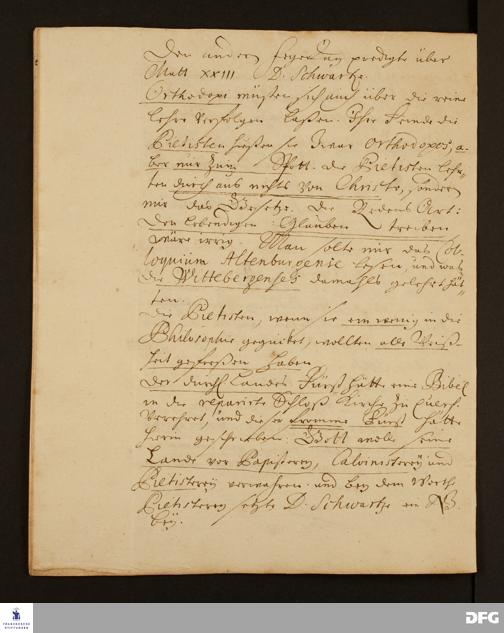 Den andern Feyertag predigte über
Matt XXIII D. Schwartze.
Orthodoxi müsten sich auch über die reine
Lehre verfolgen laßen. Ihre Feinde die
Pietisten hießen sie zwar Orthodoxos, a-
ber nur zum Spott. die Pietisten lehr-
ten durchaus nichts von Christo, sondern
nur das Gesetze. die Redens Art:
den lebendigen Glauben treiben
wäre irrig. Man solte nur das Col-
loquium Altenburgense lesen, und was
die Wittebergenses damahls gelehret hät-
ten.
die Pietisten, wenn sie ein wenig in die
Philosophie gegucket, wollten alle Weiß-
heit gefreßen haben.
der durchl Landes Fürst hätte eine Bibel
in die reparirte Schloß Kirche zu
verehret, und dieser fromme Fürst hätte
hierin geschrieben: Gott wolle seine
Lande vor Papisterey, Calvinisterey und
Pietisterey verwahren. und bey dem Worth
Pietisterey setzte D. Schwartze ein NB.
bey.
FRANCKESCHE STIFTUNGEN
DFG